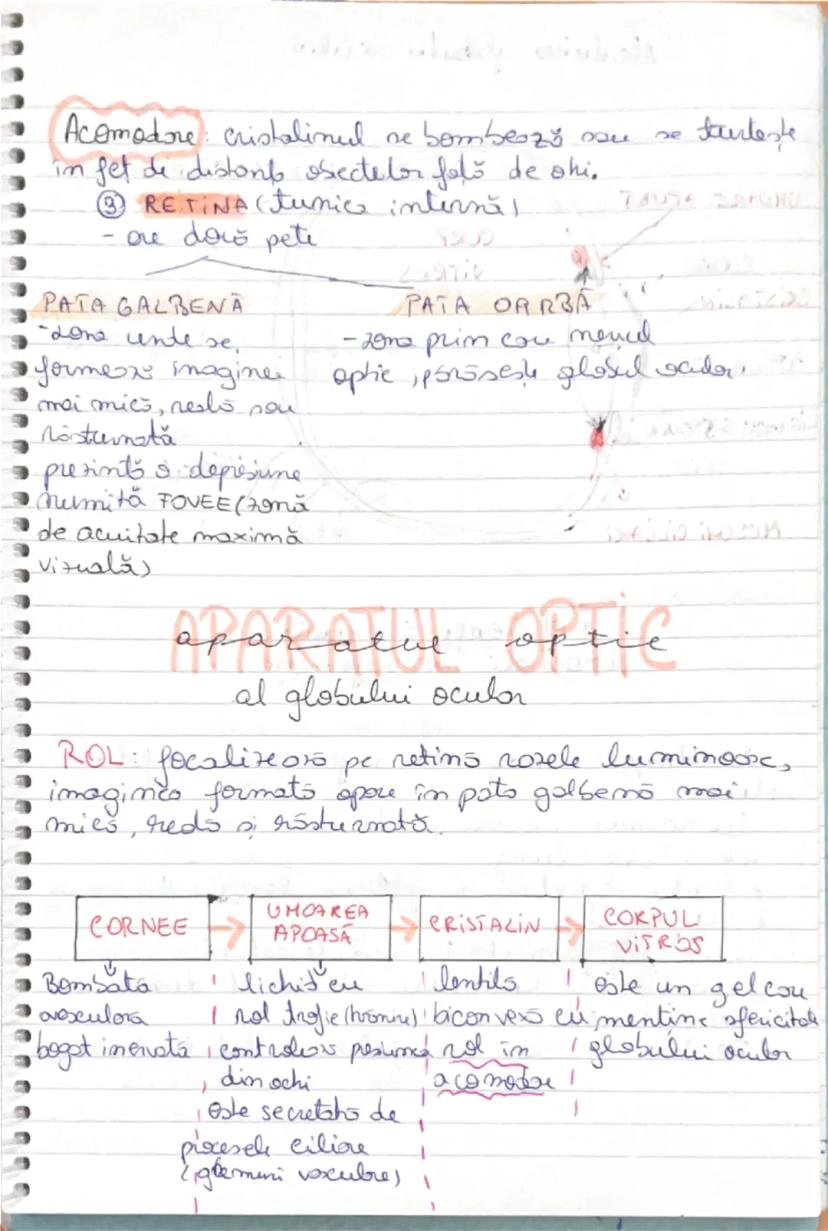 Acomodare: cristalinul se bombează sau se turtește
în fcț de distanța obiectelor față de ochi.
③ RETINA (tunica internă)
- are două pete
PATA GALBENĂ
- zona unde se
formează imaginea
mai mică, reală sau
răsturnată
prezintă o depresiune
numită FOVEE (zonă
de acuitate maximă
vizuală)
PATA OARBĂ
- zona prin care nervul
optic, părăsește globul ocular.
APARATUL OPTIC
aparatul optic
al globului ocular
ROL: focalizează pe retină razele luminoase,
imaginea formată apare în pata galbenă mai
mică, reală și răsturnată.
CORNEE
Bombată
avasculară
bogat inervată
UMOAREA
APOASĂ
lichid cu
rol trofic (hrănire)
controlează presiunea
din ochi
este secretată de
procesele ciliare
(ghemuri vasculare)
CRISTALIN
lentilă
biconvexă cu
rol în
acomodare
CORPUL
VITROS
este un gel care
mentine sfericitate
globului ocular